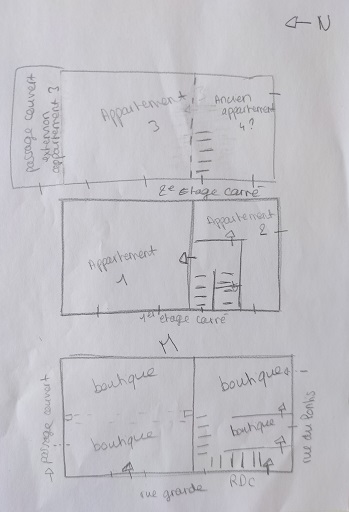 N
passage couvert
extension
appartement 3
Appartement
3
Ancien
appartement
4?
2e étage carré
Appartement
1
Appartement
2
1er étage carré
boutique
boutique
boutique
boutique
passage couvert
rue grande
RDC
rue du Ponts